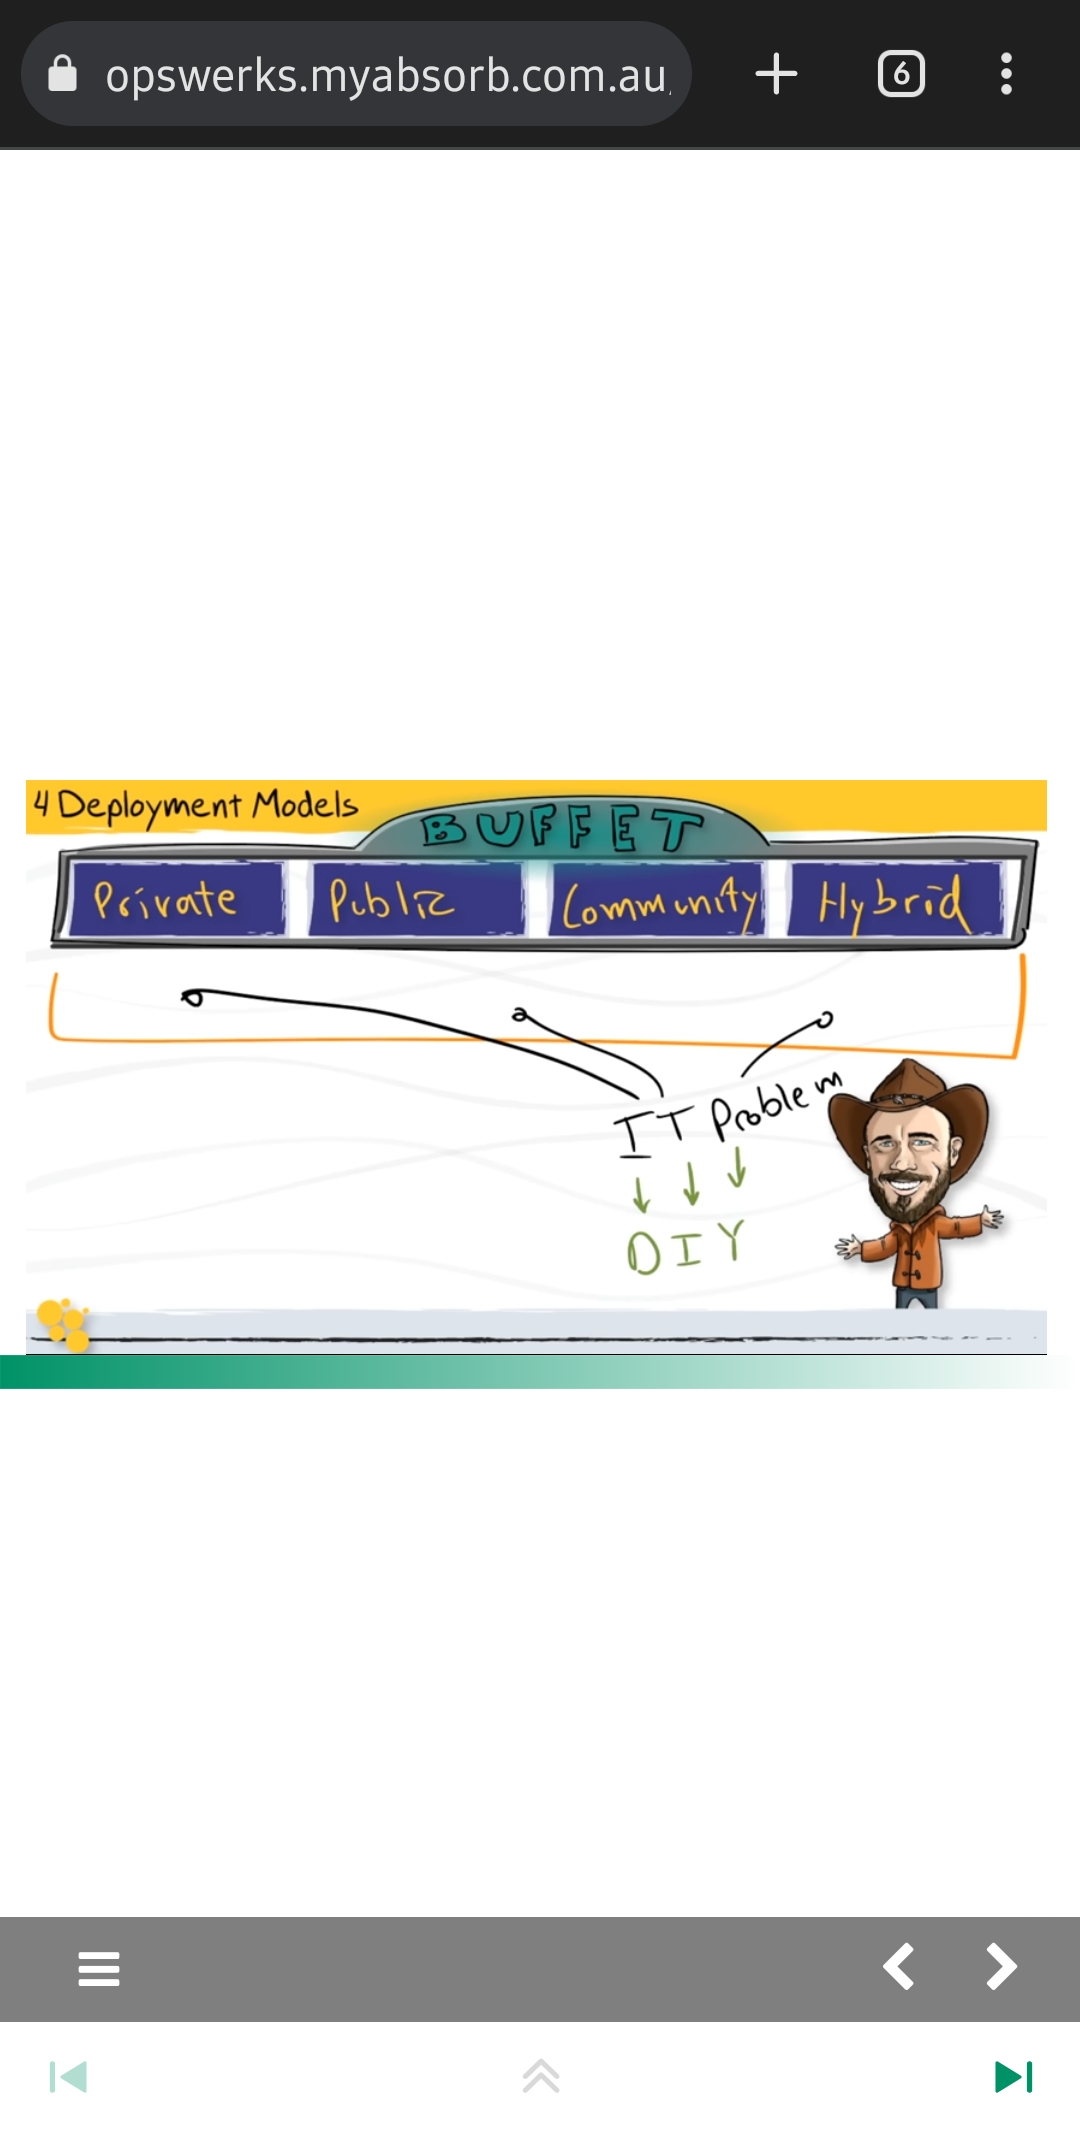 opswerks.myabsorb.com.au
6
4 Deployment Models
BUFFET
Private
Public
Community
Hybrid
IT Problem
DIY